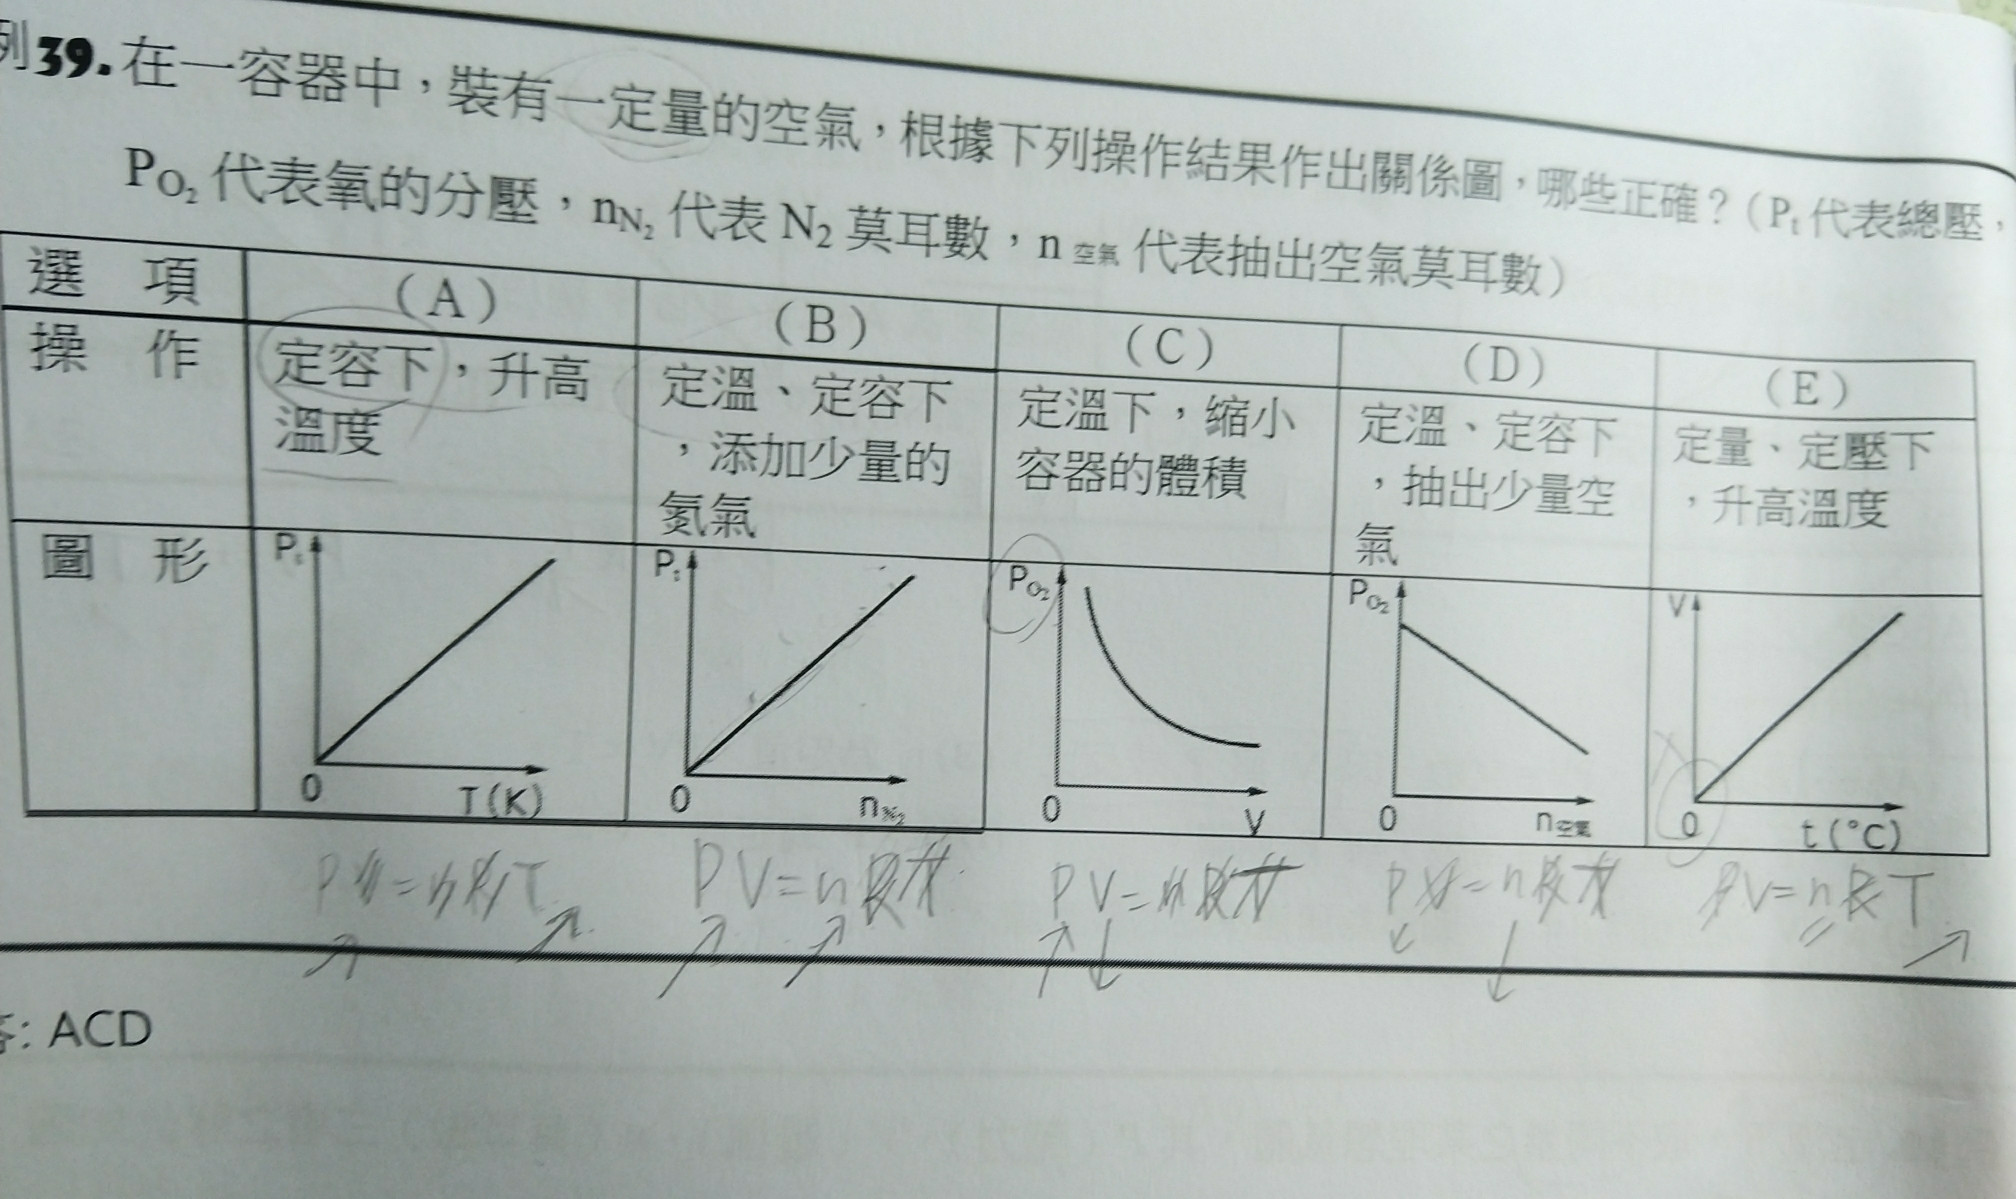 例39.在一容器中，裝有一定量的空氣，根據下列操作結果作出關係圖，哪些正確？(Pt代表總壓，
PO2代表氧的分壓，nN2代表N2莫耳數，n空氣代表抽出空氣莫耳數)
選項 (A) (B) (C) (D) (E)
操作
定容下，升高
溫度
定溫、定容下
，添加少量的
氮氣
定溫下，縮小
容器的體積
定溫、定容下
，抽出少量空
氣
定量、定壓下
，升高溫度
圖形
Pt
0
T(K)
Pt
0
nN2
PO2
0
V
PO2
0
n空氣
V
0
t(°C)
PV=nRT
PV=nRT
PV=nRT
PV=nRT
PV=nRT
答: ACD